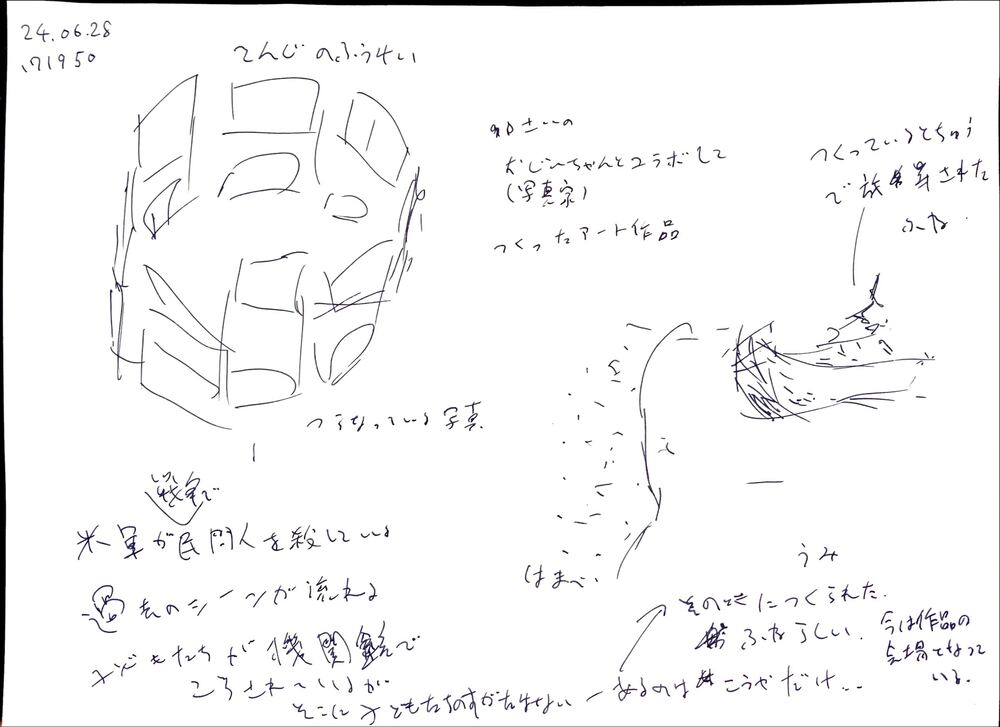 24.06.28
171950
てんじのふうけい
90さいの
おじいちゃんとコラボして
(写真家)
つくったアート作品
つくっているとちゅう
で放棄された
ふね
つらなっている写真
戦争で
米軍が民間人を殺している
過去のシーンが流れる
子どもたちが機関銃で
ころされているが、
そこに子どもたちのすがたはない
あるのは こうやだけ...
はまべ
うみ
そのときにつくられた
ふねらしい.
今は作品の
会場となって
いる.